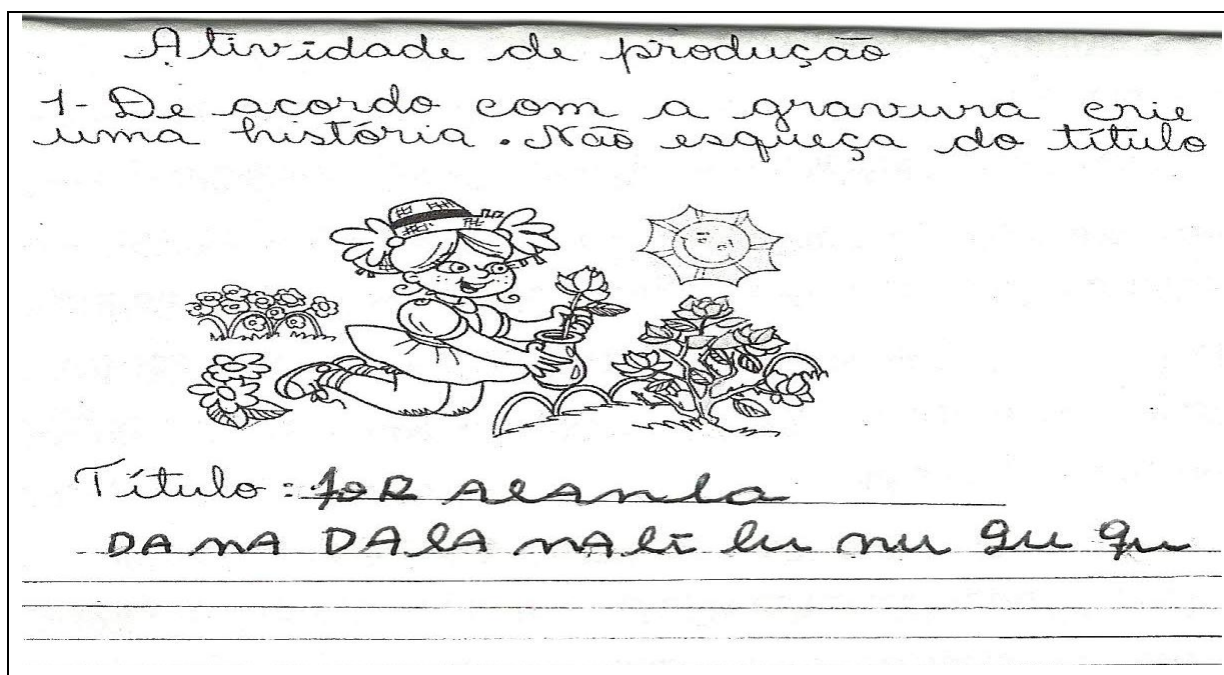 Atividade de produção
1- De acordo com a gravura crie
uma história. Não esqueça do título
Título: foR AlAnla
DA mA DAlA mAli lu mu gu qu